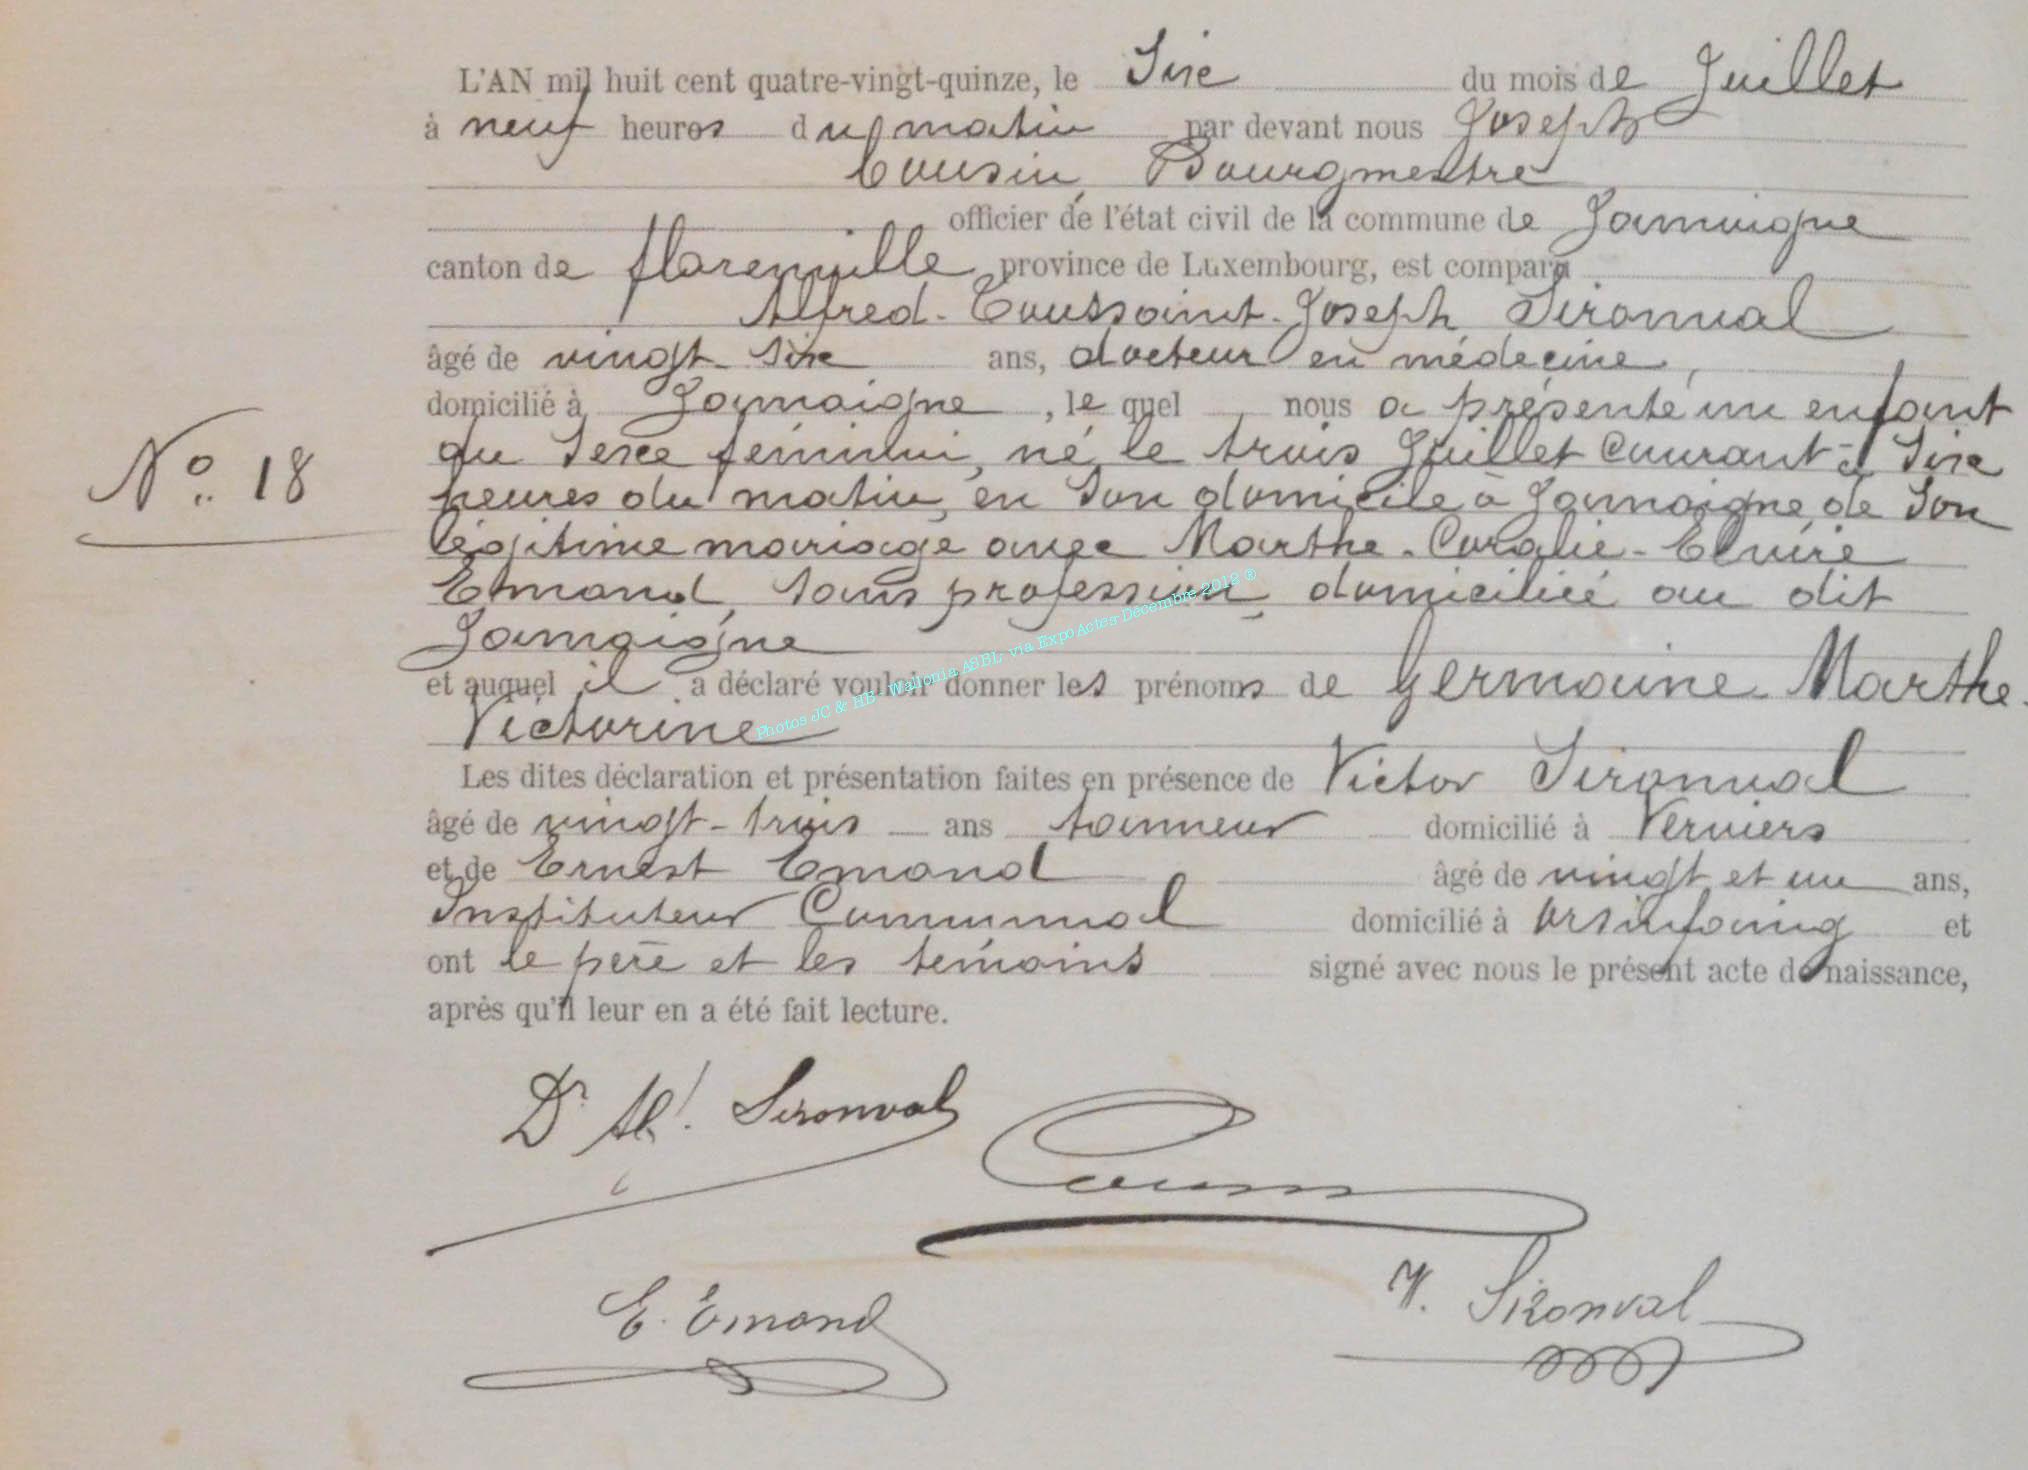 L'AN mil huit cent quatre-vingt-quinze, le Six du mois de Juillet
à neuf heures du matin par devant nous Joseph
Cousin, Bourgmestre
officier de l'état civil de la commune de Jamoigne
canton de florenville province de Luxembourg, est comparu
Alfred-Toussaint-Joseph Sironval
âgé de vingt-six ans, docteur en médecine,
domicilié à Jamoigne, le quel nous a présenté un enfant
du Sexe féminin, né le trois Juillet Courant à Six
heures du matin, en Son domicile à Jamoigne, de Son
légitime mariage avec Marthe-Coralie-Elvire
Emond, Sans profession, domiciliée au dit
Jamoigne
et auquel il a déclaré vouloir donner les prénoms de Germaine-Marthe-
Victorine
Les dites déclaration et présentation faites en présence de Victor Sironval
âgé de vingt-trois ans tanneur domicilié à Verviers
et de Ernest Emond âgé de vingt et un ans,
Instituteur Communal domicilié à Orsinfaing et
ont le père et les témoins signé avec nous le présent acte de naissance,
après qu'il leur en a été fait lecture.
No. 18
Photos JC & HB- Wallonia ASBL- via ExpoActes-Décembre 2012 ®
Dr Al. Sironval
Cousin
E. Emond
V. Sironval